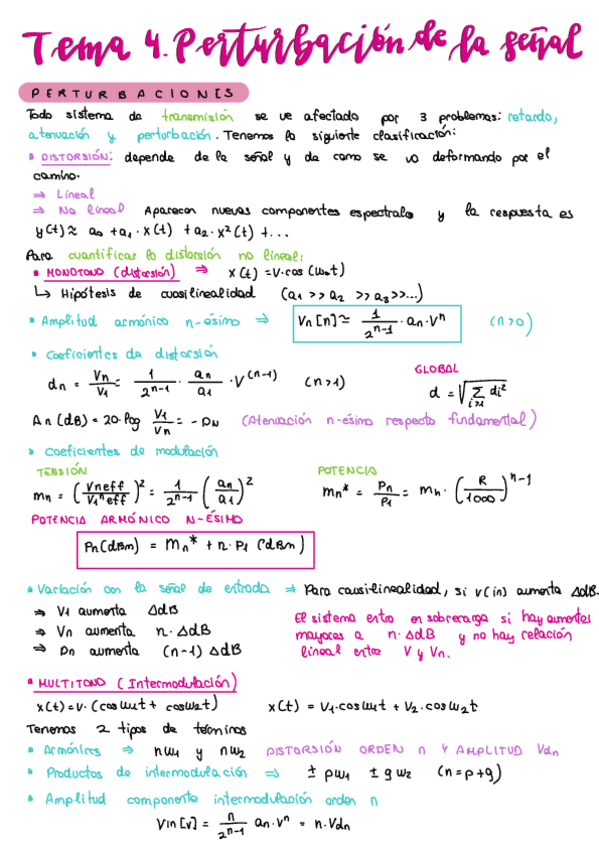 Tema 4. Perturbación de la señal
PERTURBACIONES
Todo sistema de transmisión se ve afectado por 3 problemas: retardo,
atenuación y perturbación. Tenemos la siguiente clasificación:
DISTORSIÓN: depende de la señal y da como se va deformando por el
camino.
⇒ Lineal
⇒ No lineal Aparecen nuevas componentes espectrales y la respuesta es
y(t) ≈ a0 + a1 · x(t) + a2 · x²(t) + ...
Para cuantificar la distorsión no lineal:
MONOTONO (distorsión) ⇒ x(t) = V·cos(ω0t)
↳ Hipótesis de cuasilinealidad (a1 >> a2 >> a3 >> ...)
Amplitud armónico n-ésimo ⇒ Vn[n] ≃ 1/2^(n-1) · an · V^n (n>0)
Coeficientes de distorsión
dn = Vn/V1 = 1/2^(n-1) · an/a1 · V^(n-1) (n>1) GLOBAL d = √(∑ i>1 di²)
An(dB) = 20·log V1/Vn = - Dn (Atenuación n-ésimo respecto fundamental)
Coeficientes de modulación
TENSIÓN POTENCIA
mn = (Vneff/V1^n eff)² = 1/2^(n-1) (an/a1)² mn* = Pn/P1 = mn · (R/1000)^(n-1)
POTENCIA ARMÓNICO N-ÉSIMO
Pn(dBm) = Mn* + n · P1 (dBm)
Variación con la señal de entrada ⇒ Para causilinealidad, si v(in) aumenta ΔdB.
⇒ V1 aumenta ΔdB
⇒ Vn aumenta n·ΔdB
⇒ Dn aumenta (n-1) ΔdB
El sistema entra en sobrecarga si hay aumentos
mayores a n·ΔdB y no hay relación
lineal entre V y Vn.
MULTITONO (Intermodulación)
x(t) = V·(cosω1t + cosω2t) x(t) = V1·cosω1t + V2·cosω2t
Tenemos 2 tipos de términos
Armónicos ⇒ nω1 y nω2 DISTORSIÓN ORDEN n Y AMPLITUD Vdn
Productos de intermodulación ⇒ ± pω1 ± qω2 (n=p+q)
Amplitud componente intermodulación orden n
Vin[v] = n/2^(n-1) an·V^n = n·Vdn